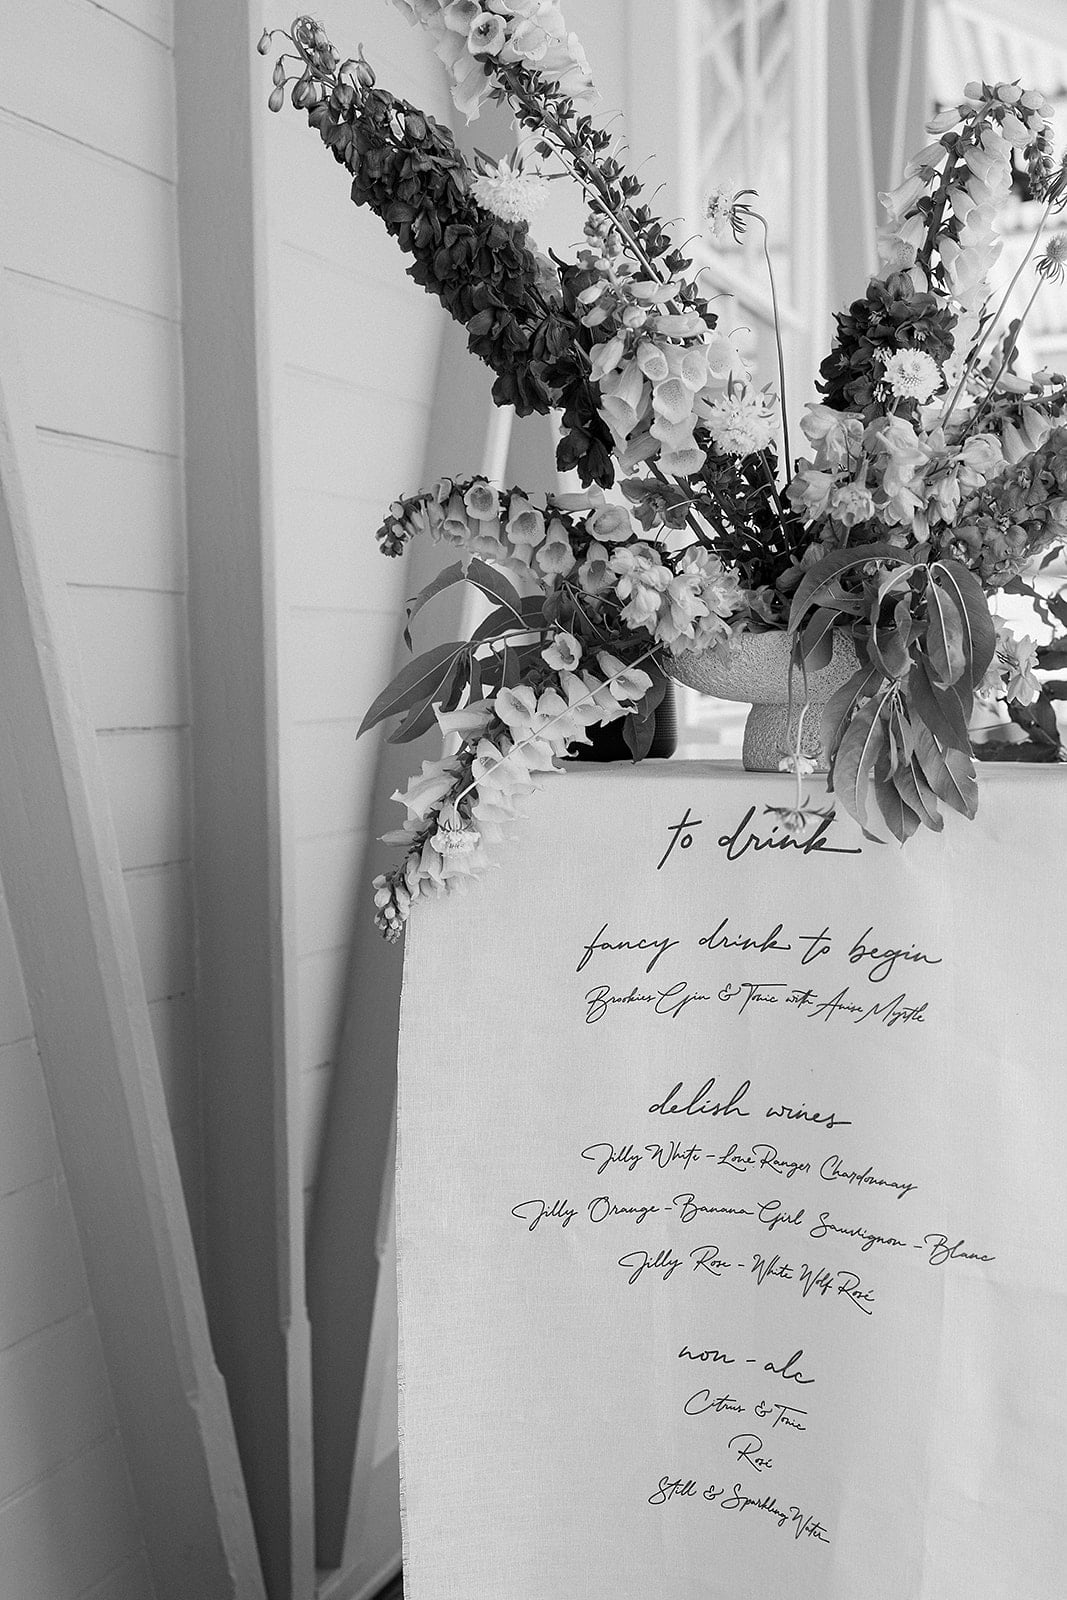 to drink
fancy drink to begin
Brookies Gin & Tonic with Anise Myrtle
delish wines
Jilly White - Lone Ranger Chardonnay
Jilly Orange - Banana Girl Sauvignon - Blanc
Jilly Rose - White Wolf Rosé
non - alc
Citrus & Tonic
Rosé
Still & Sparkling Water